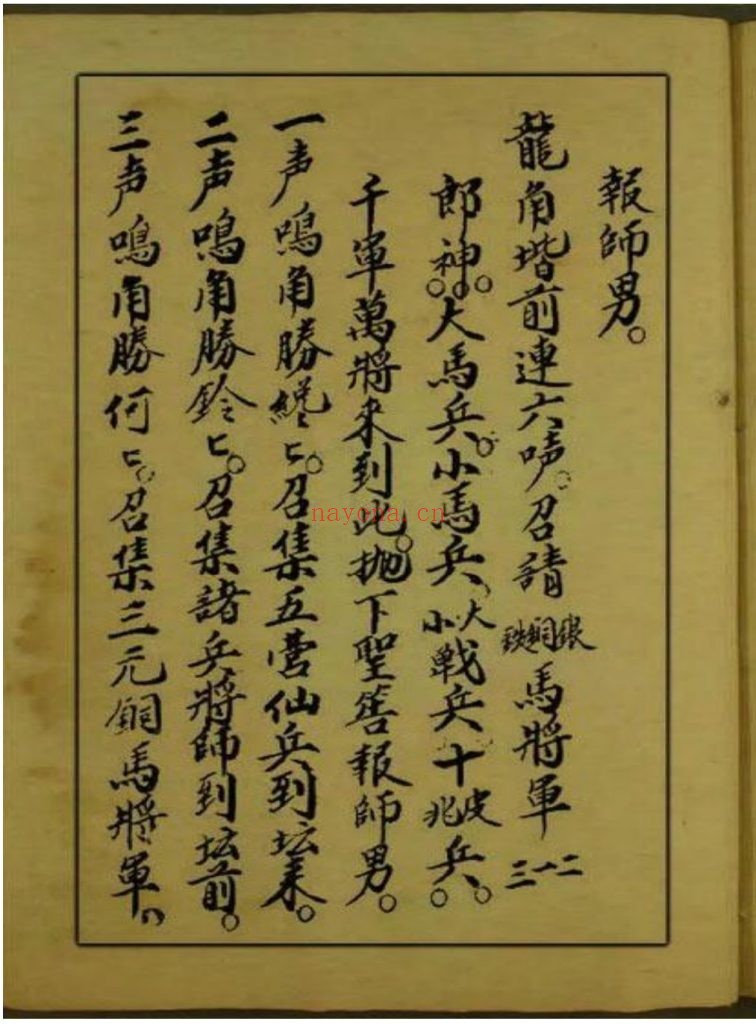 報師男。
龍角堦前連六声。召請銀銅鉄馬將軍一二三
郎神。大馬兵。小馬兵、大小戰兵十皮兆兵。
千軍萬將来到此。抛下聖筶報師男。
一声鳴角勝縱〻。召集五营仙兵到坛来。
二声鳴角勝鈴〻。召集諸兵將師到坛前。
三声鳴角勝何〻。召集三元銅馬將軍。
nayona.cn